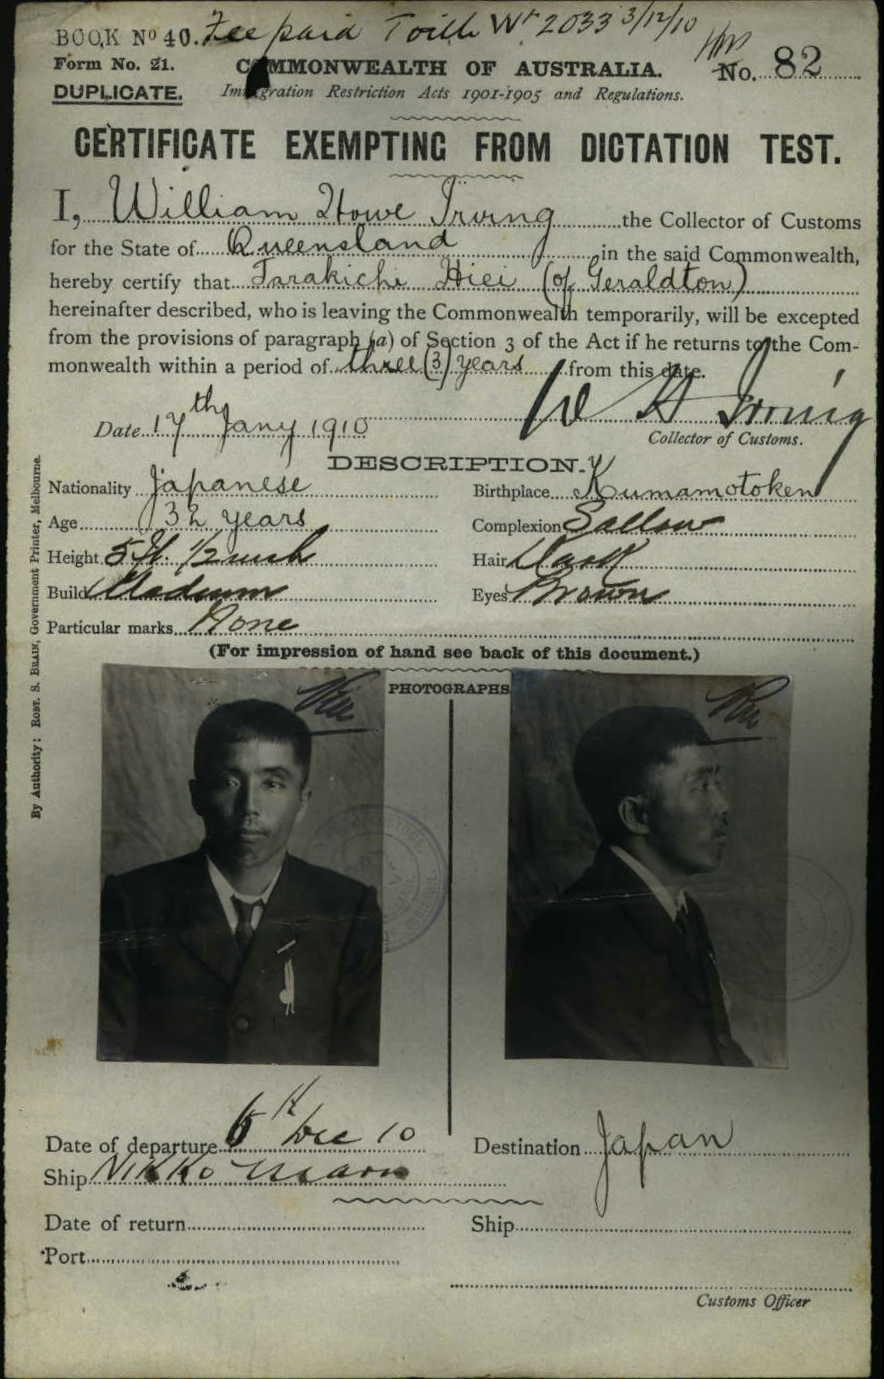 BOOK Nº 40. Fee paid T'ville Wt 2033 3/12/10
Form No. 21. COMMONWEALTH OF AUSTRALIA. No. 82
DUPLICATE. Immigration Restriction Acts 1901-1905 and Regulations.
CERTIFICATE EXEMPTING FROM DICTATION TEST.
I, William Howe Irving the Collector of Customs
for the State of Queensland in the said Commonwealth,
hereby certify that Tarakichi Hiei (of Geraldton)
hereinafter described, who is leaving the Commonwealth temporarily, will be excepted
from the provisions of paragraph (a) of Section 3 of the Act if he returns to the Com-
monwealth within a period of three (3) years from this date.
W H Irving
Date 17th Jany 1910
Collector of Customs.
DESCRIPTION.
Nationality Japanese Birthplace Kumamotoken
Age 32 years Complexion Sallow
Height 5 ft. 1/2 inch Hair Dark
Build Medium Eyes Brown
Particular marks None
(For impression of hand see back of this document.)
PHOTOGRAPHS
Date of departure 6th Dec 10 Destination Japan
Ship Nikko Maru
Date of return Ship
Port
Customs Officer
By Authority: ROBT. S. BRAIN, Government Printer, Melbourne.